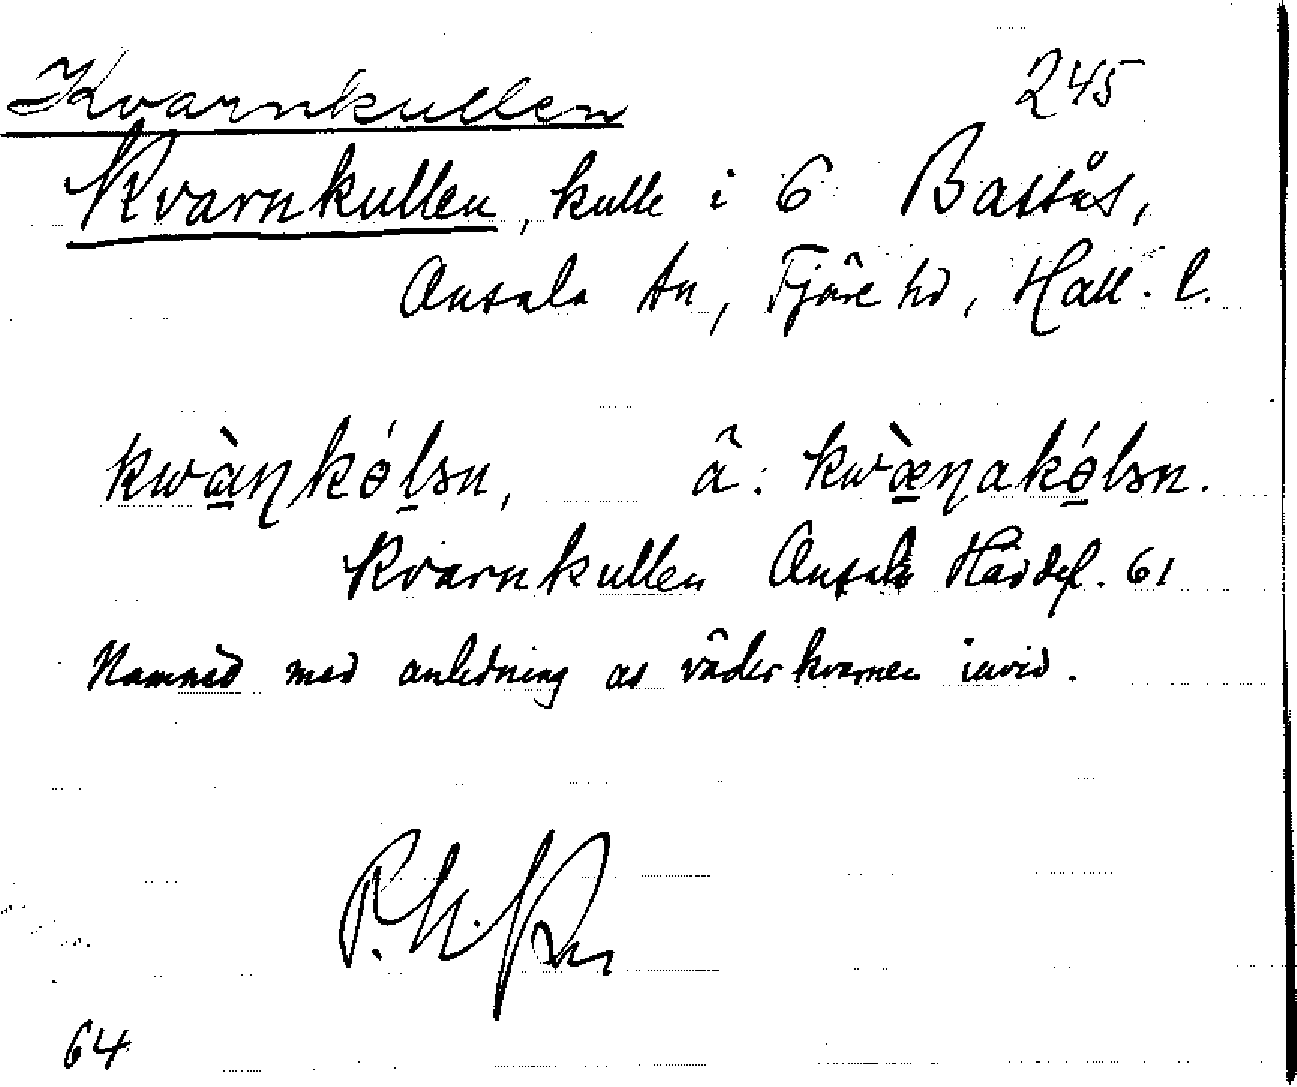 Kvarnkullen 245
Kvarnkullen, kulle i 6 Bassås,
Onsala sn, Fjäre hd, Hall. l.
kwànkólsn, ä: kwæ̀nakólsn.
Kvarnkullen Onsala 61
Namned med anledning av väderkvarnen invid.
64